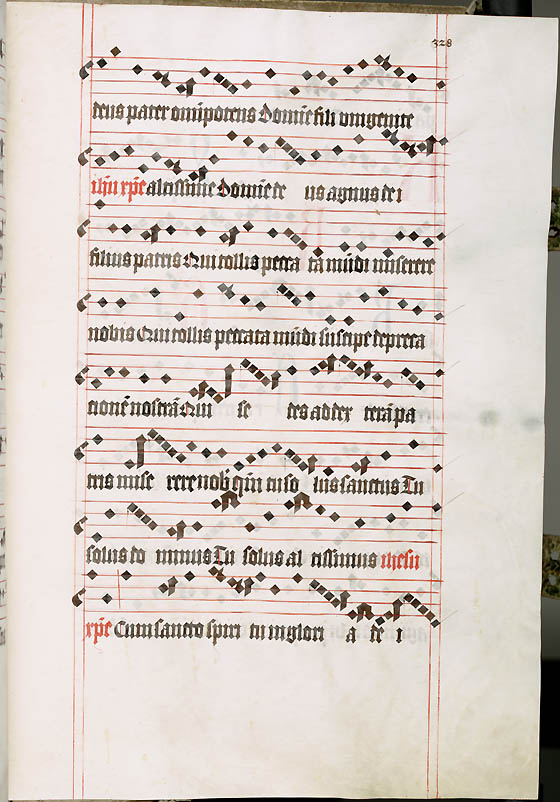 328
deus pater om̄ipotens Domīe fili unigenite
ihū xp̄e altissime Domīe de us agnus dei
filius patris Qui tollis pecca ta mūdi miserere
nobis Qui tollis peccata mūdi suscipe depreca
tionē nostrā Qui se des ad dex terā pa
tris mise rere nob̄ qm̄ tu so lus sanctus Tu
solus do minus Tu solus al tissimus ihesu
xp̄e Cum sancto spiri tu in glori a de i